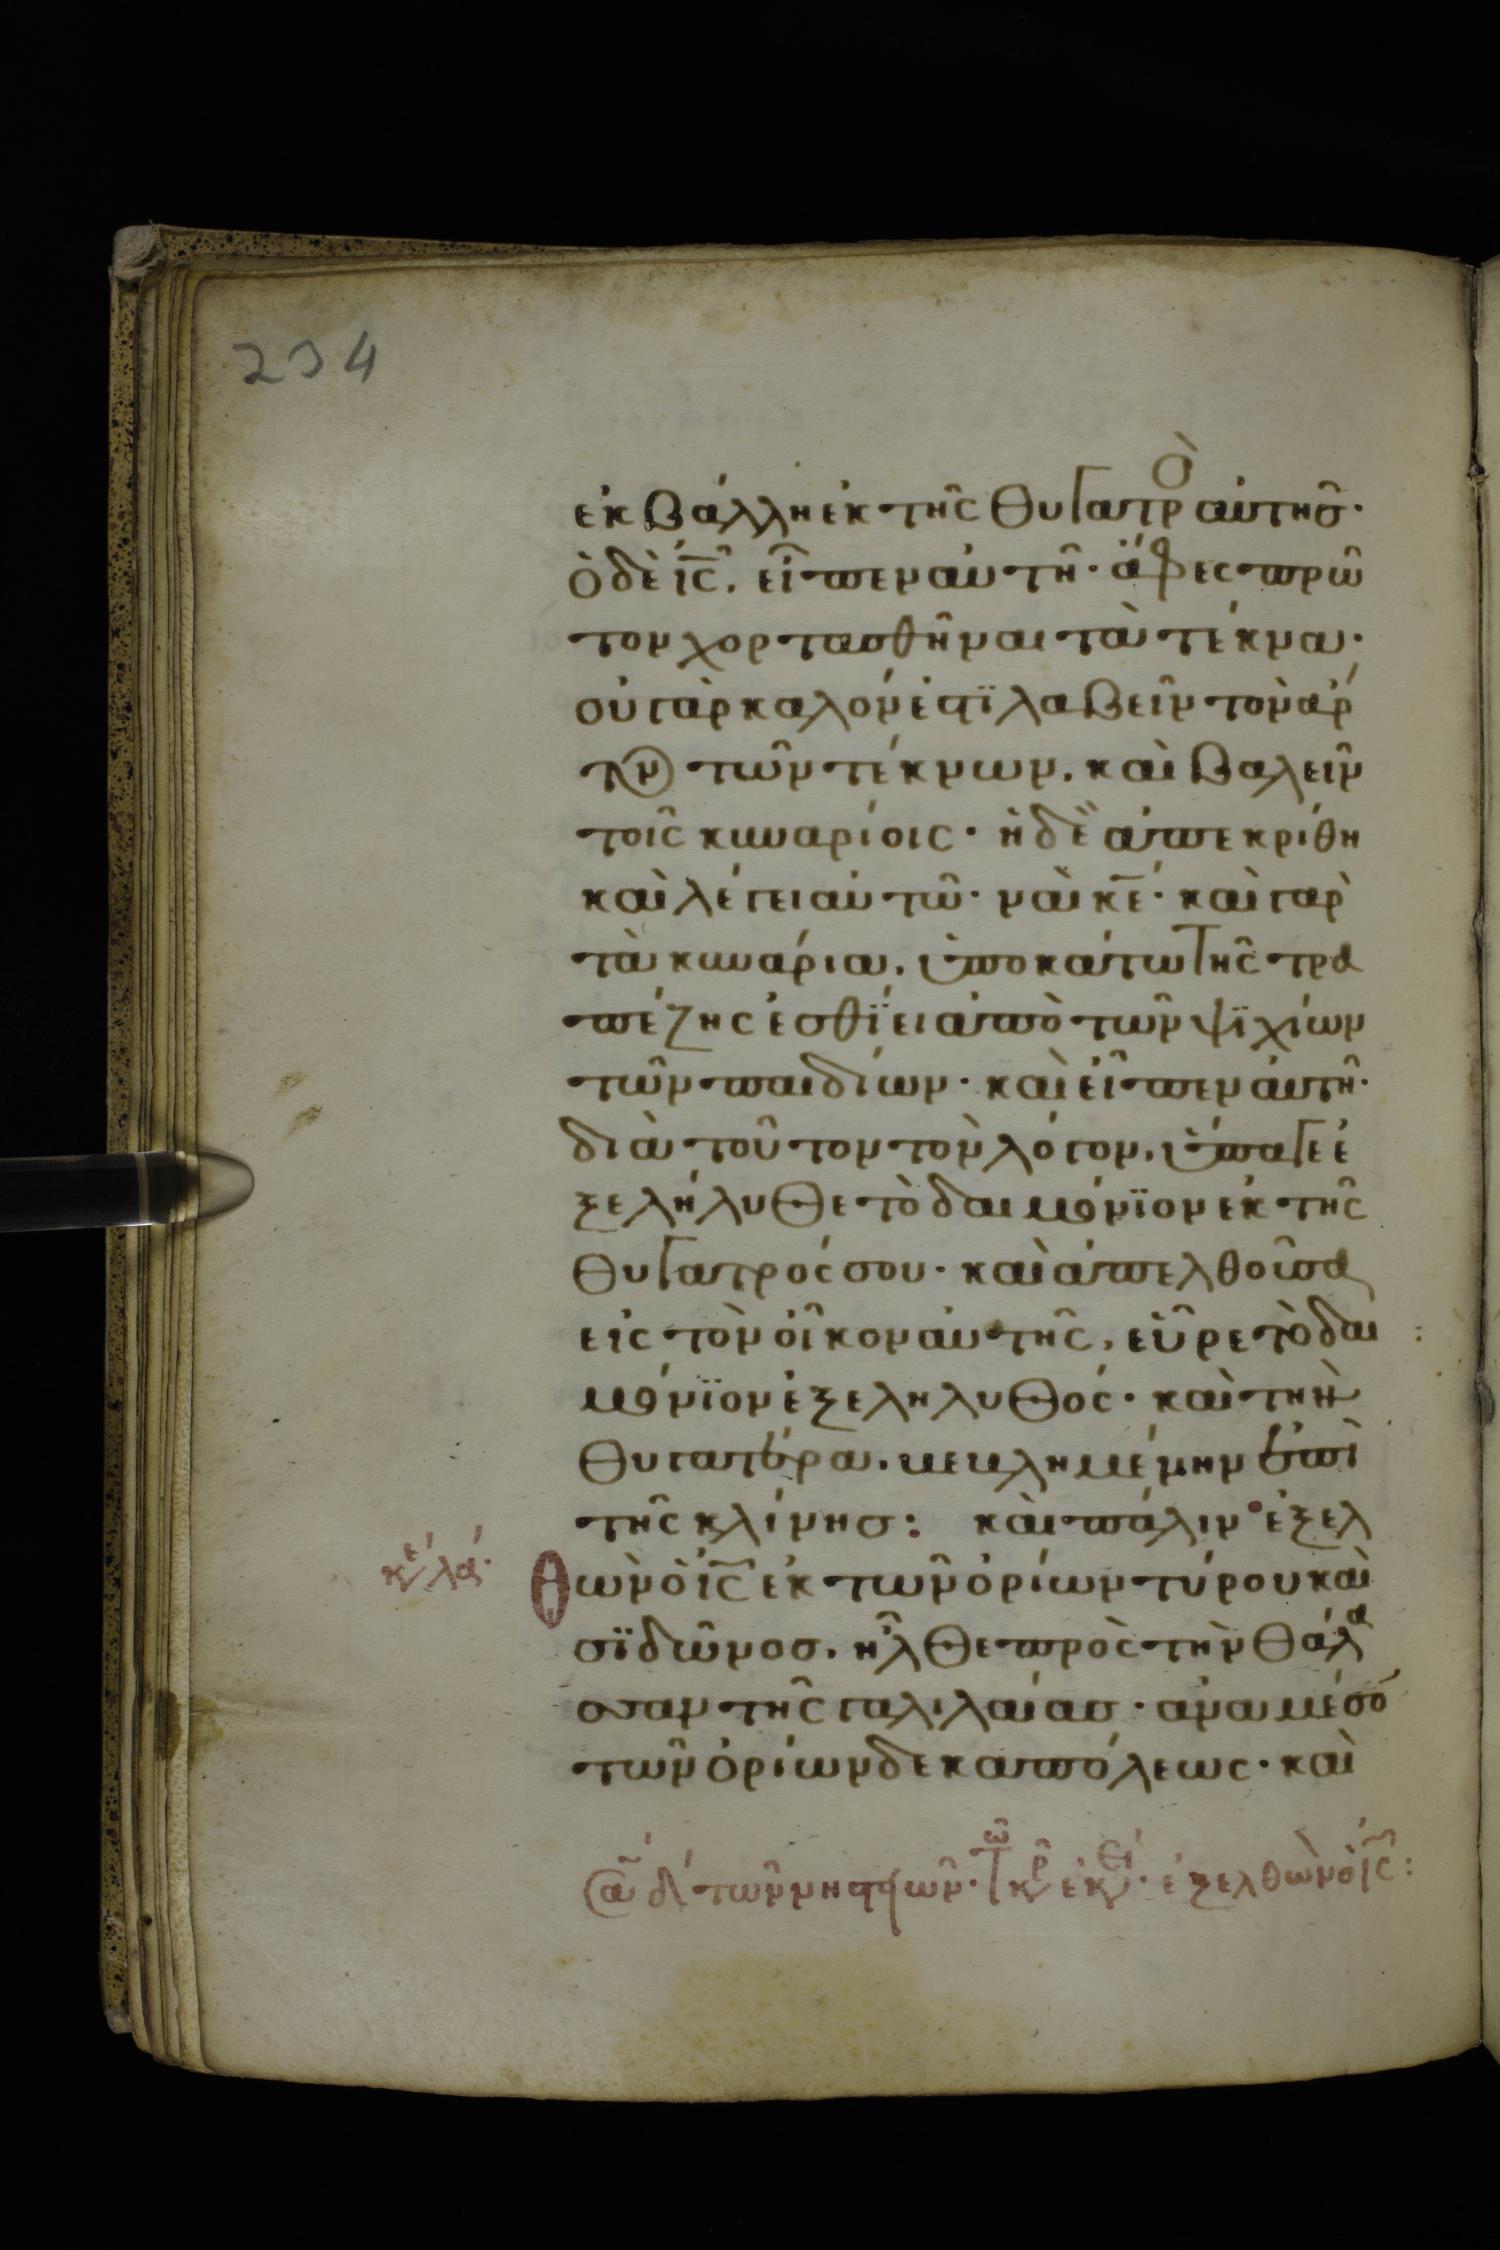 234
ἐκβάλλη ἐκ τῆς θυγατρὸ αὐτῆσ·
ὁ δὲ ις, εἶπεν αὐτῆ· ἄφες πρῶ
τον χορτασθῆναι τὰ τέκνα·
οὐ γὰρ καλόν ἐστϊ λαβεῖν τὸν ἄρ
τον τῶν τέκνων, καὶ βαλεῖν
τοῖς κυναρίοις· ἡ δὲ ἀπεκρίθη
καὶ λέγει αὐτῶ· ναὶ κε· καὶ γὰρ
τὰ κυνάρια, ὑποκάτω τῆς τρα
πέζης ἐσθΐει ἀπὸ τῶν ψϊχίων
τῶν παιδίων· καὶ εἶπεν αὐτῆ·
διὰ τοῦτον τὸν λόγον, ὕπαγε ἐ
ξελήλυθε τὸ δαιμόνϊον ἐκ τῆς
θυγατρός σου· καὶ ἀπελθοῦσα
εἰς τὸν οἶκον αὐτῆς, εὗρε τὸ δαι
μόνϊον ἐξεληλυθός· καὶ τὴν
θυγατέρα, κεκλημένην ἐπὶ
τῆς κλίνησ: καὶ πάλιν ἐξελ
θὼν ὁ ις ἐκ τῶν ὁρίων τύρου καὶ
σϊδῶνοσ, ἦλθε πρὸς τὴν θάλα
σσαν τῆς γαλιλαίασ· ἀνα μέσο
τῶν ὁρίων δεκαπόλεως· καὶ
κε λα·
τῶν νηστειῶν· τῶ κρ ἐκει· ἐξελθὼν ὁ ις: